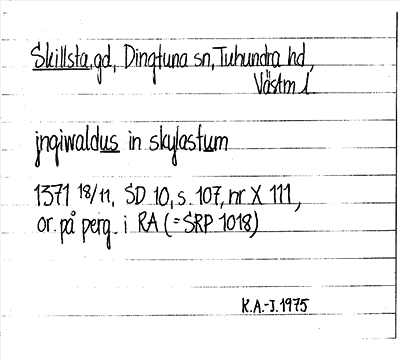 Skillsta, gd, Dingtuna sn, Tuhundra hd,
Västm l
jngiwaldus in skylastum
1371 18/11, SD 10, s. 107, nr X 111,
or. på perg. i RA (= SRP 1018)
K.A.-J. 1975